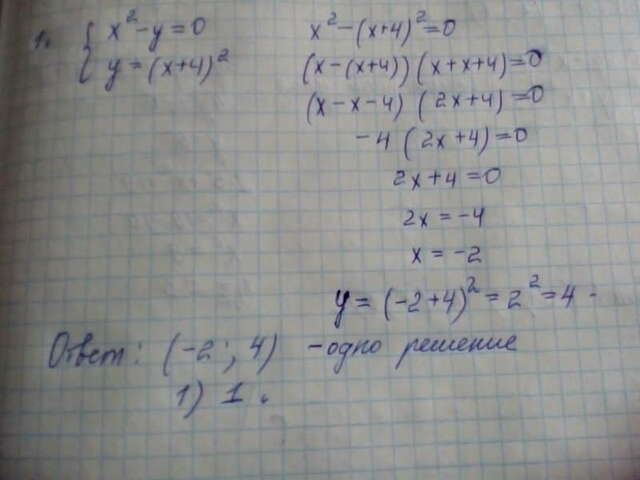 1. { x² - y = 0
y = (x+4)²
x² - (x+4)² = 0
(x-(x+4))(x+x+4)=0
(x-x-4) (2x+4)=0
-4 (2x+4)=0
2x+4=0
2x = -4
x = -2
y = (-2+4)² = 2² = 4 -
Ответ: (-2; 4) - одно решение
1) 1.